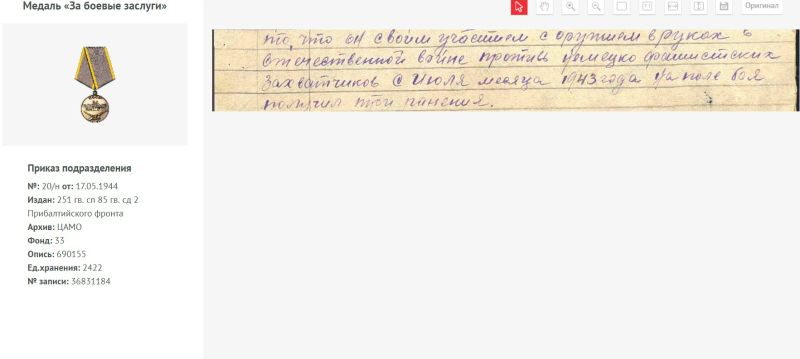 Медаль «За боевые заслуги»
Оригинал
то, что он своим участием с оружием в руках в
отечественной войне против немецко фашистских
захватчиков с Июля месяца 1943 года на поле боя
получил три
Приказ подразделения
№: 20/н от: 17.05.1944
Издан: 251 гв. сп 85 гв. сд 2
Прибалтийского фронта
Архив: ЦАМО
Фонд: 33
Опись: 690155
Ед.хранения: 2422
№ записи: 36831184